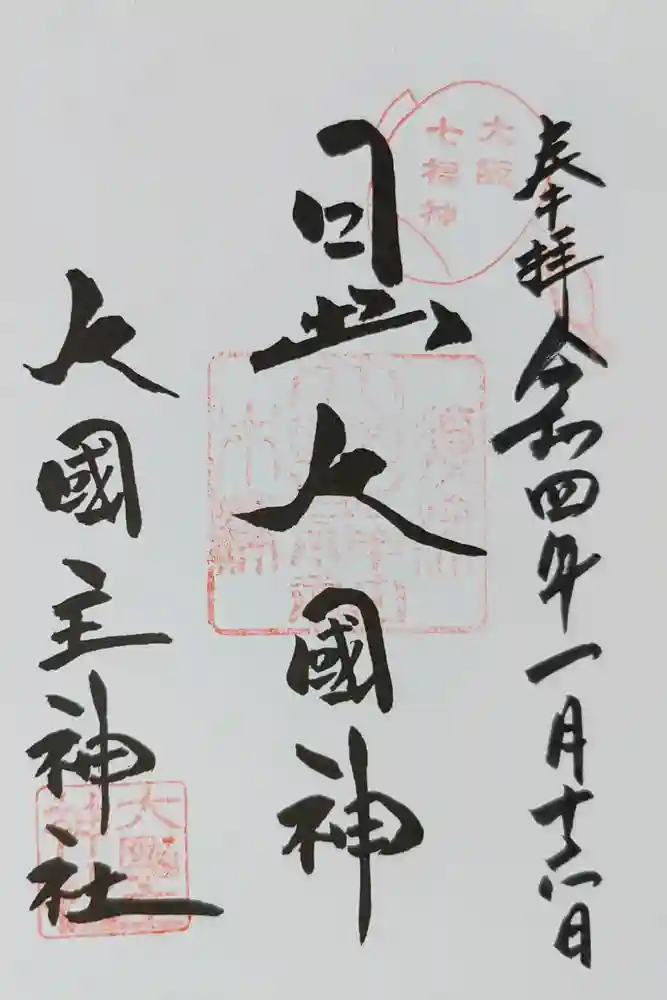 奉拝 令和四年一月十六日
大阪
七福神
日出大國神
大國主神社